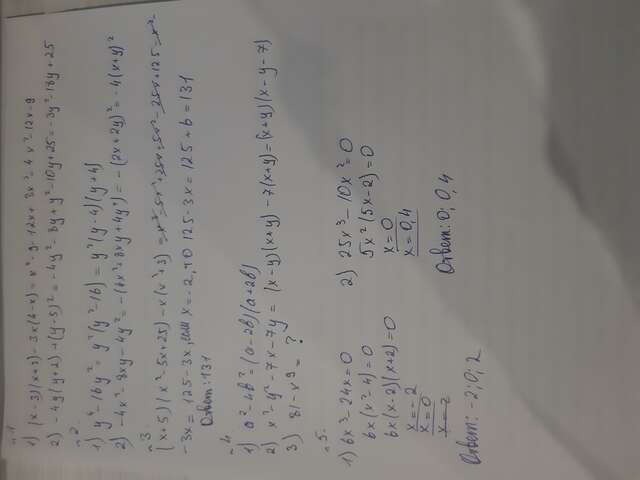 №1
1) (x-3)(x+3)-3x(4-x)=x²-9-12x+3x²=4x²-12x-9
2) -4y(y+2)-(y-5)²=-4y²-8y+y²-10y+25=-3y²-18y+25
№2
1) y⁴-16y²=y²(y²-16)=y²(y-4)(y+4)
2) -4x²-8xy-4y²=-(4x²+8xy+4y²)=-(2x+2y)²=-4(x+y)²
№3
(x+5)(x²-5x+25)-x(x²+3)=x³-5x²+25x+5x²-25x+125-x³
-3x=125-3x, если x=-2, то 125-3x=125+6=131
Ответ: 131
№4
1) a²-4b²=(a-2b)(a+2b)
2) x²-y²-7x-7y=(x-y)(x+y)-7(x+y)=(x+y)(x-y-7)
3) 81-x⁹=?
№5.
1) 6x³-24x=0
6x(x²-4)=0
6x(x-2)(x+2)=0
x=-2
x=0
x=2
Ответ: -2; 0; 2
2) 25x³-10x²=0
5x²(5x-2)=0
x=0
x=0,4
Ответ: 0; 0,4